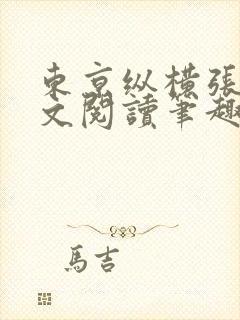 東京纵横張
文閱讀筆趣
馬吉